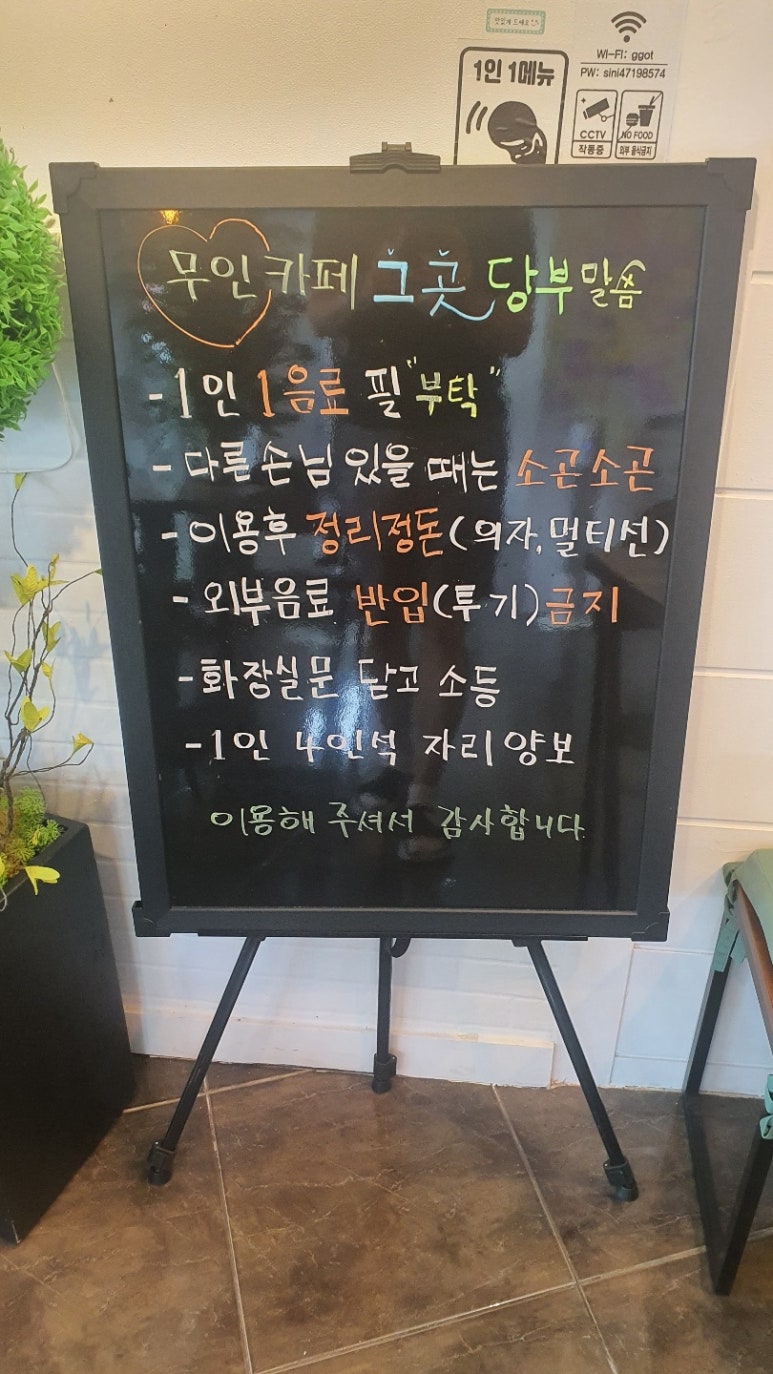 맛있게 드세요
1인 1메뉴
WI-FI: ggot
PW: sini47198574
CCTV
작동중
NO FOOD
외부 음식금지
무인카페 그곳 당부말씀
-1인 1음료 필"부탁"
-다른손님 있을 때는 소곤소곤
-이용후 정리정돈(의자,멀티선)
-외부음료 반입(투기)금지
-화장실문 닫고 소등
-1인 4인석 자리양보
이용해 주셔서 감사합니다.